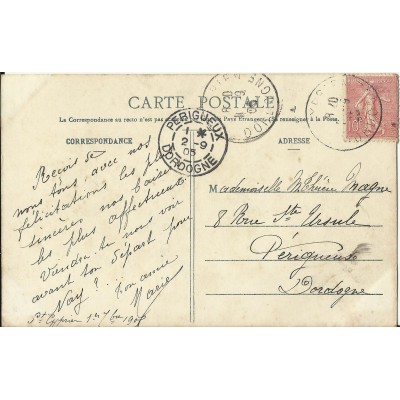 CARTE POSTALE
La Correspondance au recto n'est pas
Pays Étrangers. (Se renseigner à la Poste.)
CORRESPONDANCE
ADRESSE
PÉRIGUEUX
1 *
2 - 9
05
DORDOGNE
Reçois de
nous tous avec nos
félicitations les plus
sincères nos baisers
les plus affectueux
Viendras tu nous voir
avant ton départ pour
Nay? Ton amie
Marie
St Cyprien 1er 7bre 1905
Mademoiselle Magne
8 Rue Ste Ursule
Périgueux
Dordogne